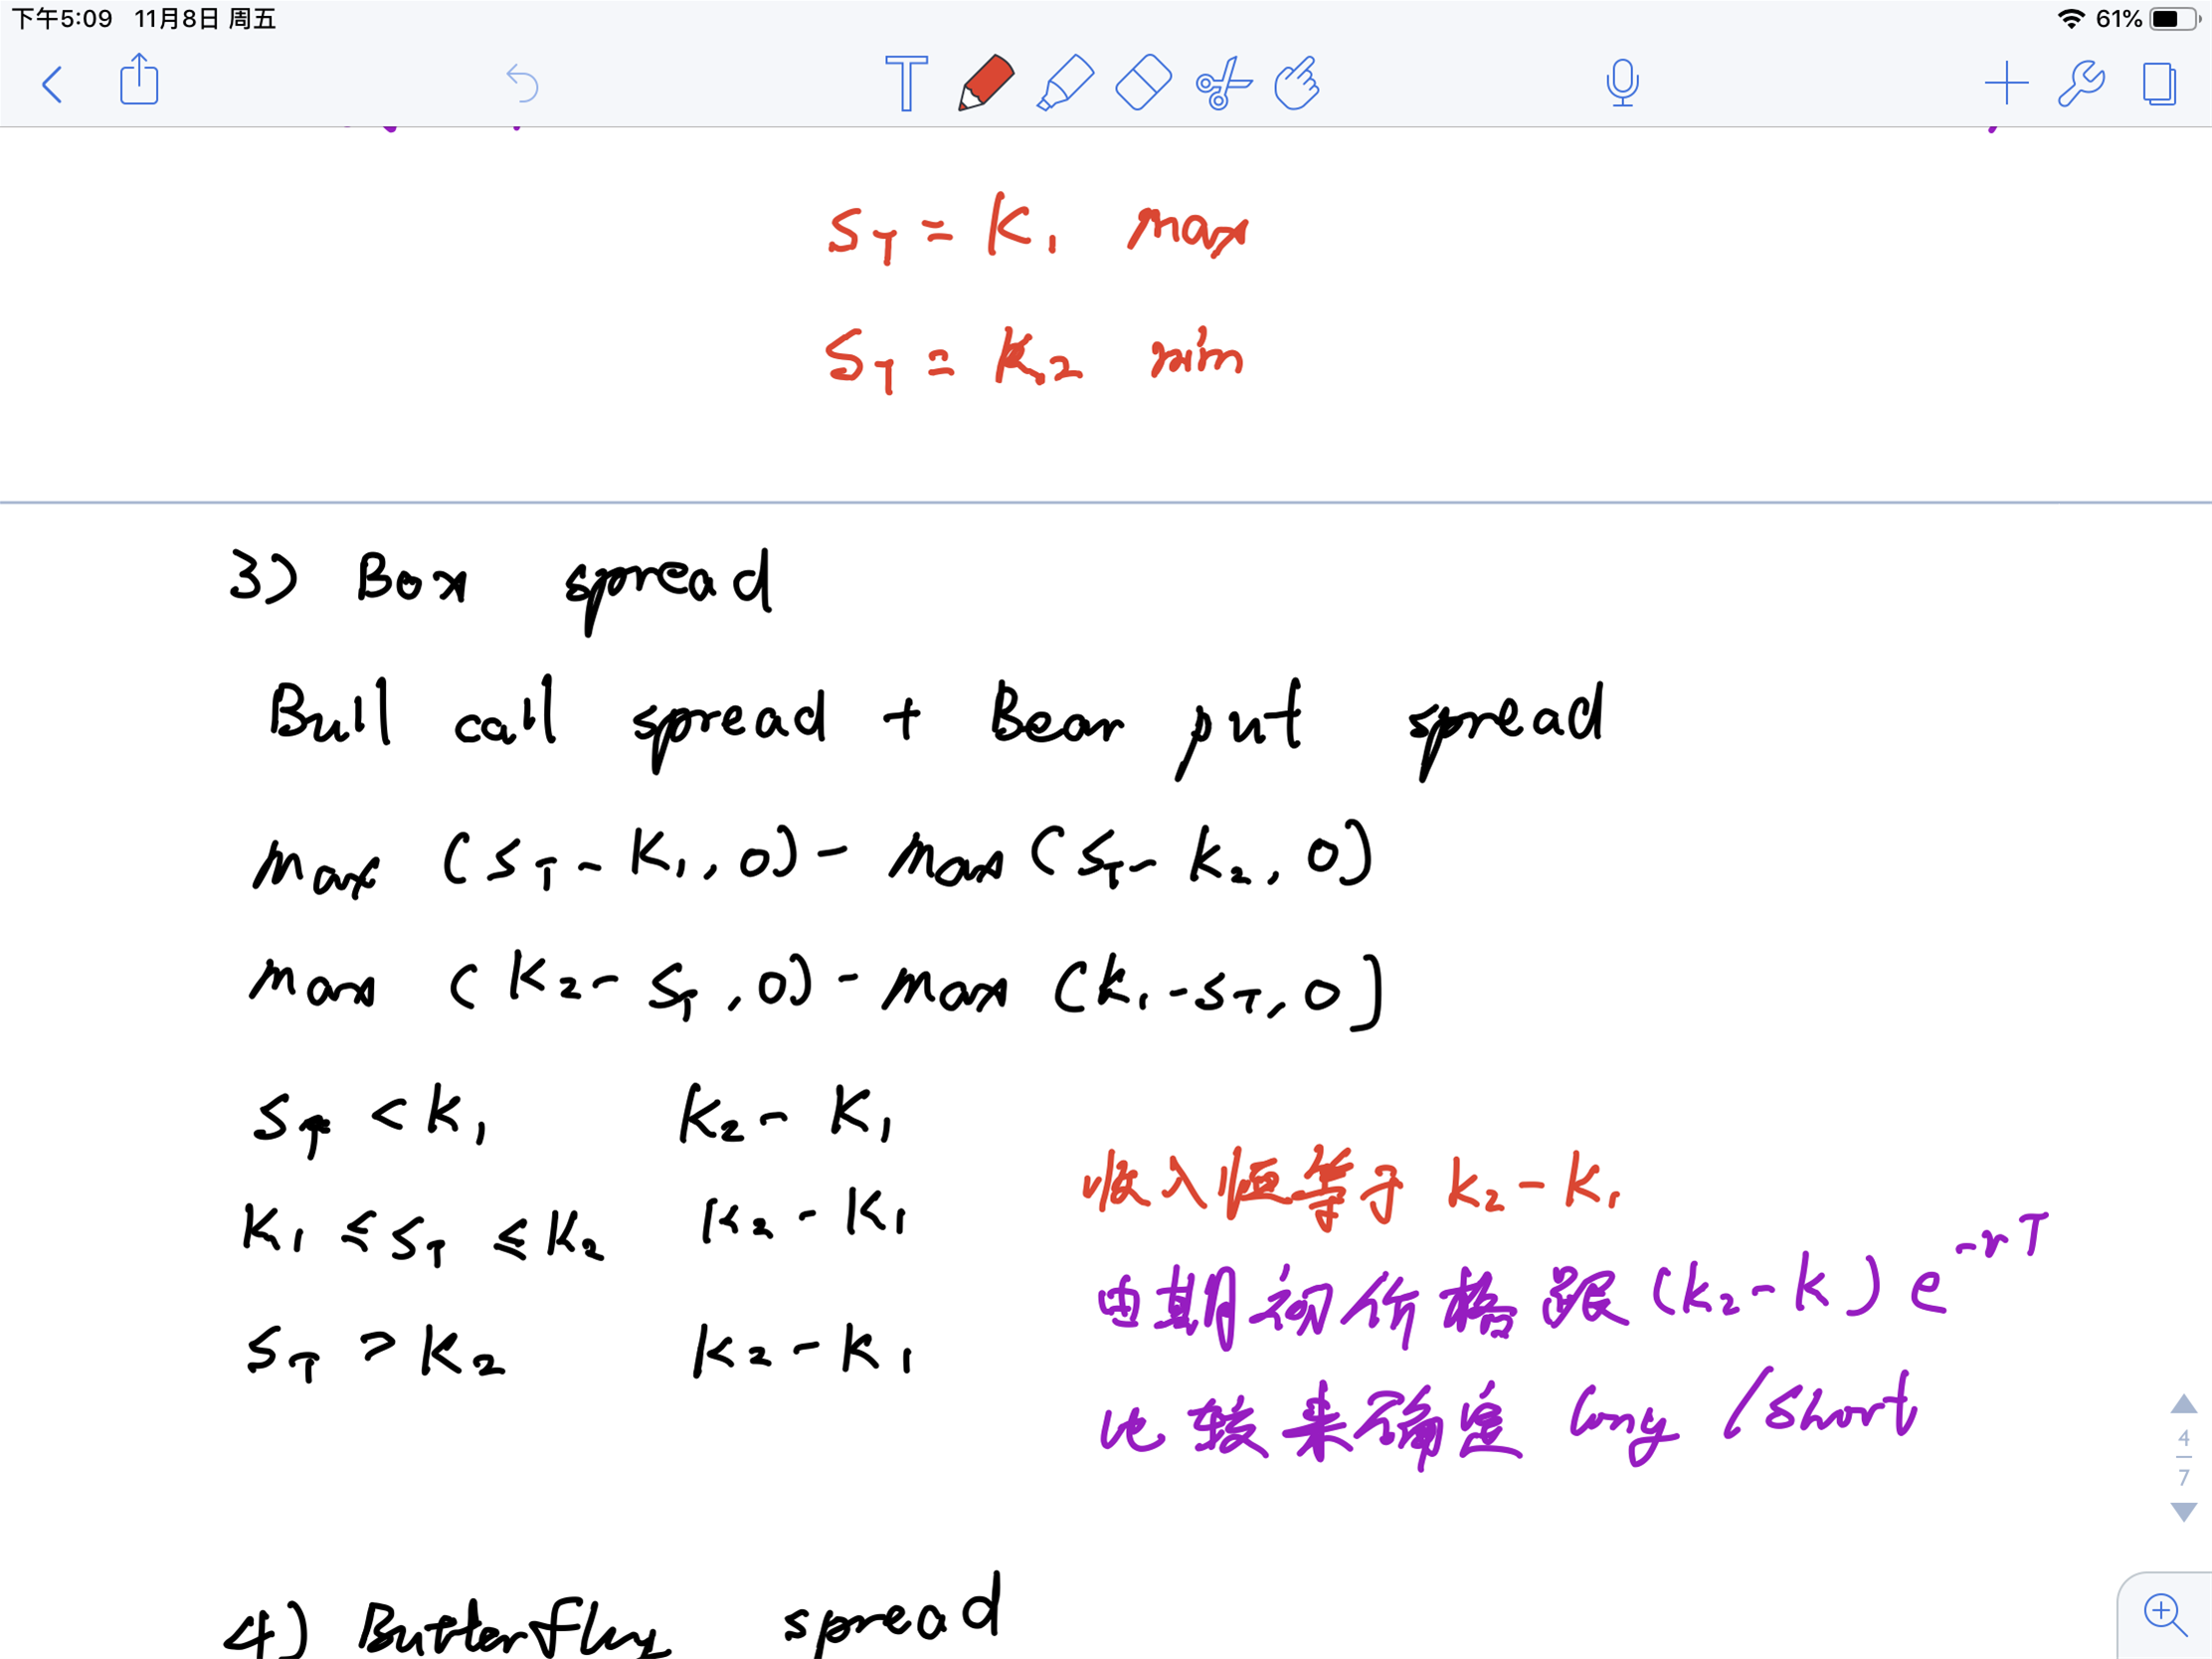 下午5:09 11月8日 周五 61%
T
S_T = K_1 max
S_T = K_2 min
3) Box spread
Bull call spread + Bear put spread
max (S_T - K_1, 0) - max (S_T - K_2, 0)
max (K_2 - S_T, 0) - max (K_1 - S_T, 0)
S_T < K_1 K_2 - K_1
收入恒等于 K_2 - K_1
K_1 ≤ S_T ≤ K_2 K_2 - K_1
由期初价格跟 (K_2 - K) e^{-rT}
S_T > K_2 K_2 - K_1
比较来确定 long / short
4
7
4) Butterfly spread